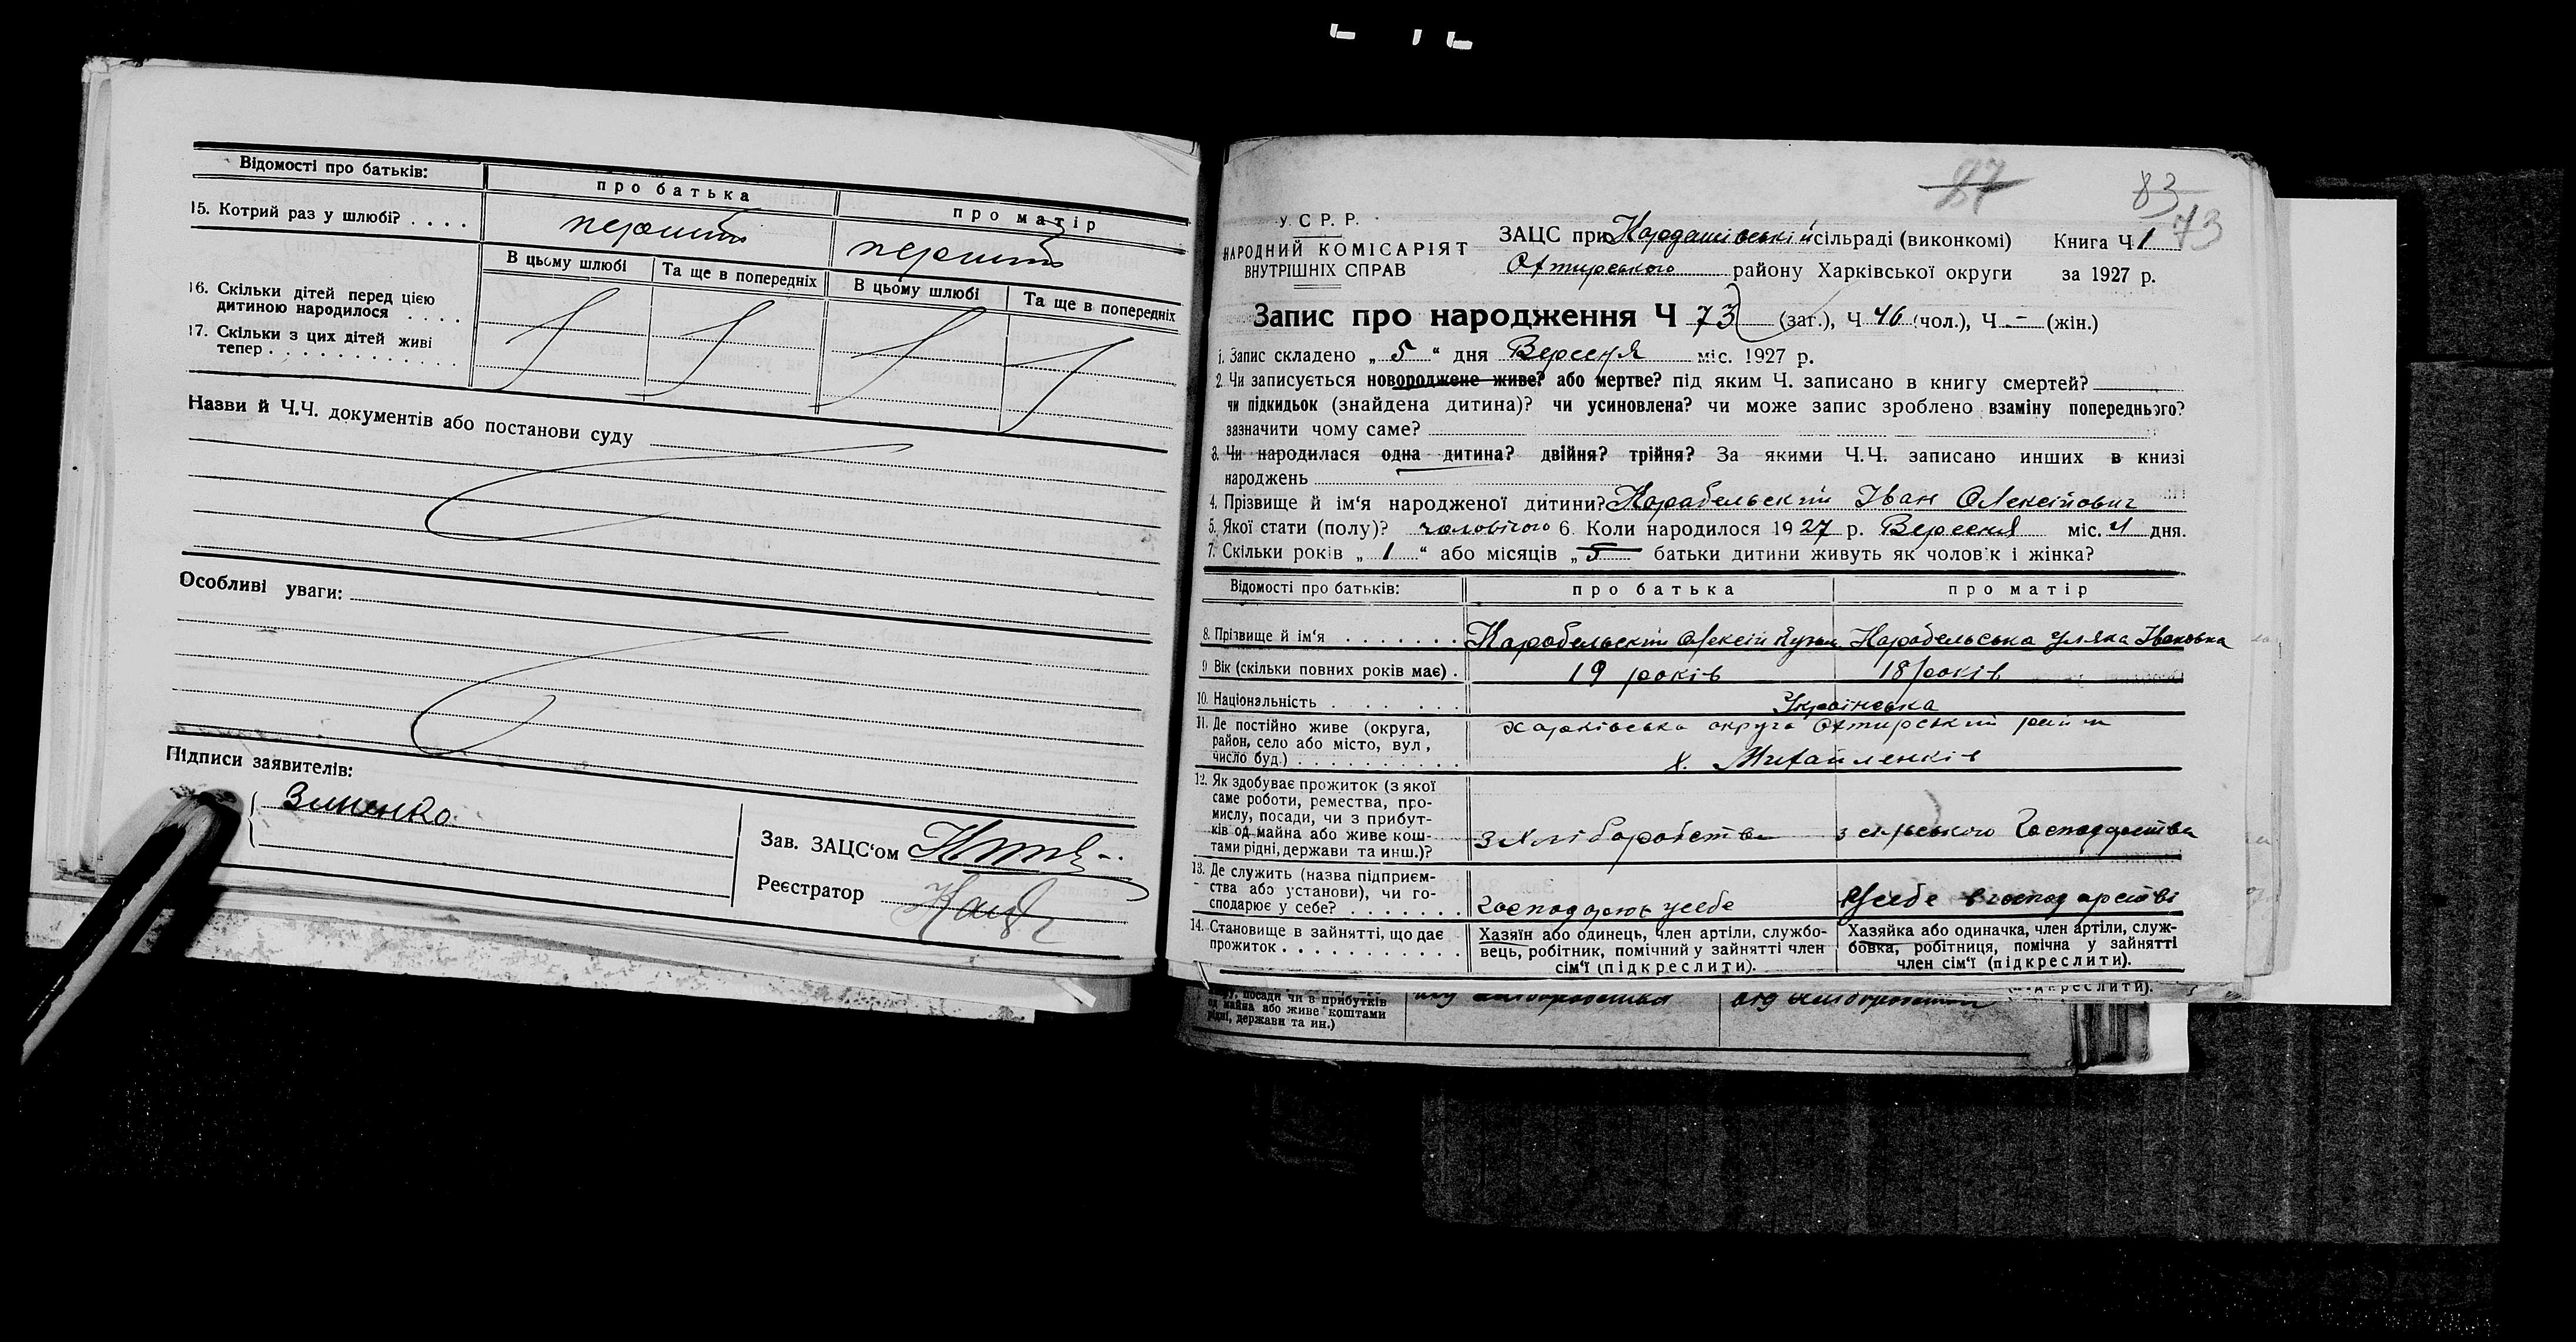 Відомості про батьків:
про батька
про матір
15. Котрий раз у шлюбі? . . . .
перший
перший
В цьому шлюбі
Та ще в попередніх
В цьому шлюбі
Та ще в попередніх
16. Скільки дітей перед цією
дитиною народилося . . . .
17. Скільки з цих дітей живі
тепер . . . . . . . . . . . .
Назви й Ч.Ч. документів або постанови суду
Особливі уваги:
Підписи заявителів:
Зиненко
Зав. ЗАЦС'ом
Реєстратор
87
83
73
У. С. Р. Р.
НАРОДНИЙ КОМІСАРІЯТ
ВНУТРІШНІХ СПРАВ
ЗАЦС при Кардашівській сільраді (виконкомі) Книга Ч. 1
Охтирського району Харківської округи за 1927 р.
Запис про народження Ч 73 (заг.), Ч 46 (чол.), Ч - (жін.)
1. Запис складено „ 5 “ дня Вересня міс. 1927 р.
2. Чи записується новороджене живе? або мертве? під яким Ч. записано в книгу смертей?
чи підкидьок (знайдена дитина)? чи усиновлена? чи може запис зроблено взаміну попереднього?
зазначити чому саме?
3. Чи народилася одна дитина? двійня? трійня? За якими Ч.Ч. записано инших в книзі
народжень
4. Прізвище й ім'я народженої дитини? Карабельский Іван Олексійович
5. Якої стати (полу)? чоловічого 6. Коли народилося 1927 р. Вересня міс. 4 дня.
7. Скільки років „ 1 “ або місяців „ 5 “ батьки дитини живуть як чоловік і жінка?
Відомості про батьків:
про батька
про матір
8. Прізвище й ім'я . . . . . . .
Карабельский Олексій
Карабельська Уляна Івановна
9. Вік (скільки повних років має) .
19 років
18 років
10. Національність . . . . . . .
Українська
11. Де постійно живе (округа,
район, село або місто, вул.,
число буд.) . . . . . . . . . .
Харківська округа Охтирський район
х. Михайленків
12. Як здобуває прожиток (з якої
саме роботи, ремества, про-
мислу, посади, чи з прибут-
ків од майна або живе кош-
тами рідні, держави та инш.)?
з хліборобства
з сільського господарства
13. Де служить (назва підприєм-
ства або установи), чи го-
сподарює у себе? . . . . . . .
господарює у себе
у себе в господарстві
14. Становище в зайнятті, що дає
прожиток . . . . . . . . . . . .
Хазяїн або одинець, член артіли, службо-
вець, робітник, помічний у зайнятті член
сім'ї (підкреслити).
Хазяйка або одиначка, член артіли, служ-
бовка, робітниця, помічна у зайнятті
член сім'ї (підкреслити).
посади чи в прибутків
од майна або живе коштами
рідні, держави та ин.)